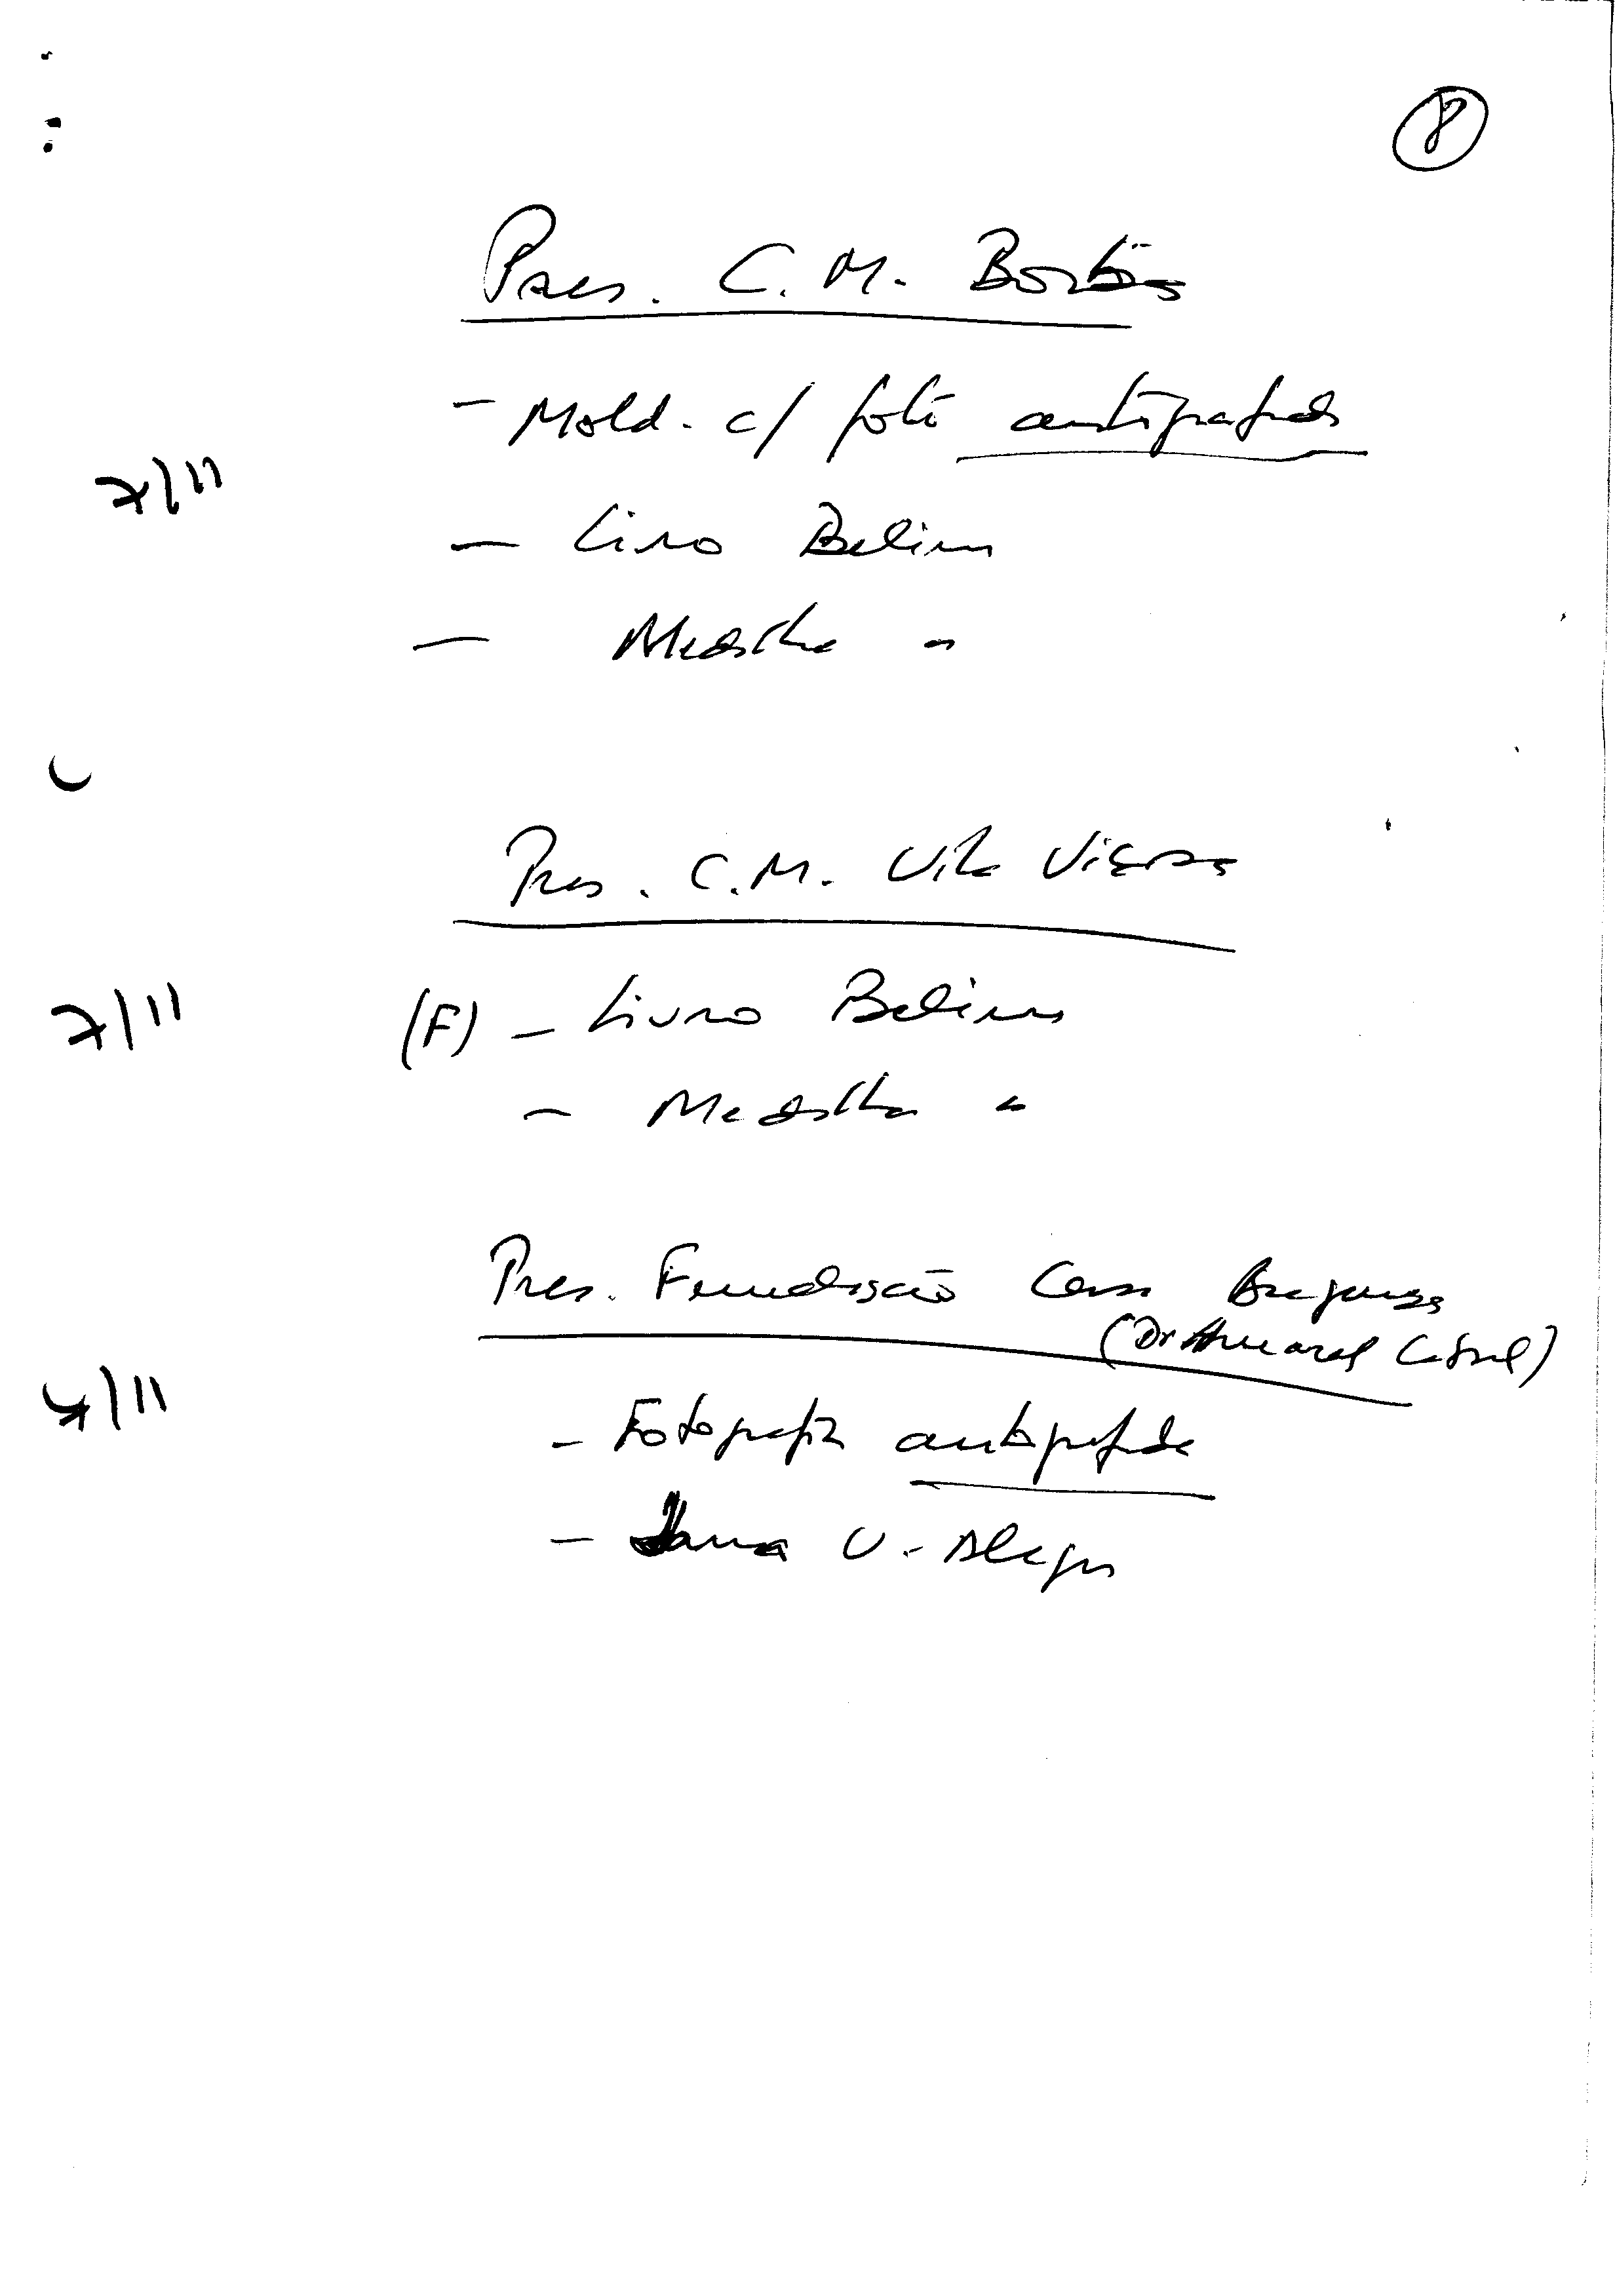 8
Pres. C. M. Borba
- Mold. c/ foto autografada
7/11
- Livro Belém
- Medalha "
Pres. C.M. Vila Viçosa
7/11 (F) - Livro Belém
- Medalha "
Pres. Fundação Casa Bragança
(Dr Amaral Cabral)
7/11
- Fotografia autografada
- V. Alegre